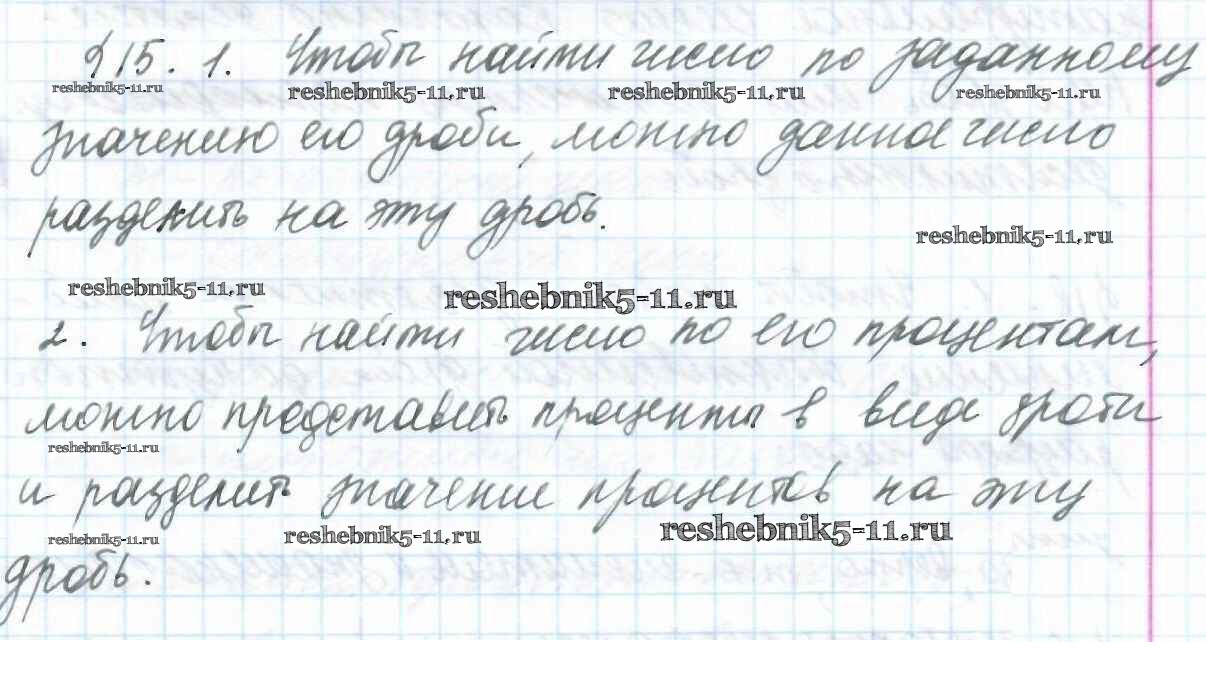 §15. 1. Чтобы найти число по заданному
reshebnik5-11.ru reshebnik5-11.ru reshebnik5-11.ru reshebnik5-11.ru
значению его дроби, можно данное число
разделить на эту дробь.
reshebnik5-11.ru
reshebnik5-11.ru reshebnik5-11.ru
2. Чтобы найти число по его процентам,
можно представить проценты в виде дроби
reshebnik5-11.ru
и разделить значение процентов на эту
reshebnik5-11.ru reshebnik5-11.ru reshebnik5-11.ru
дробь.